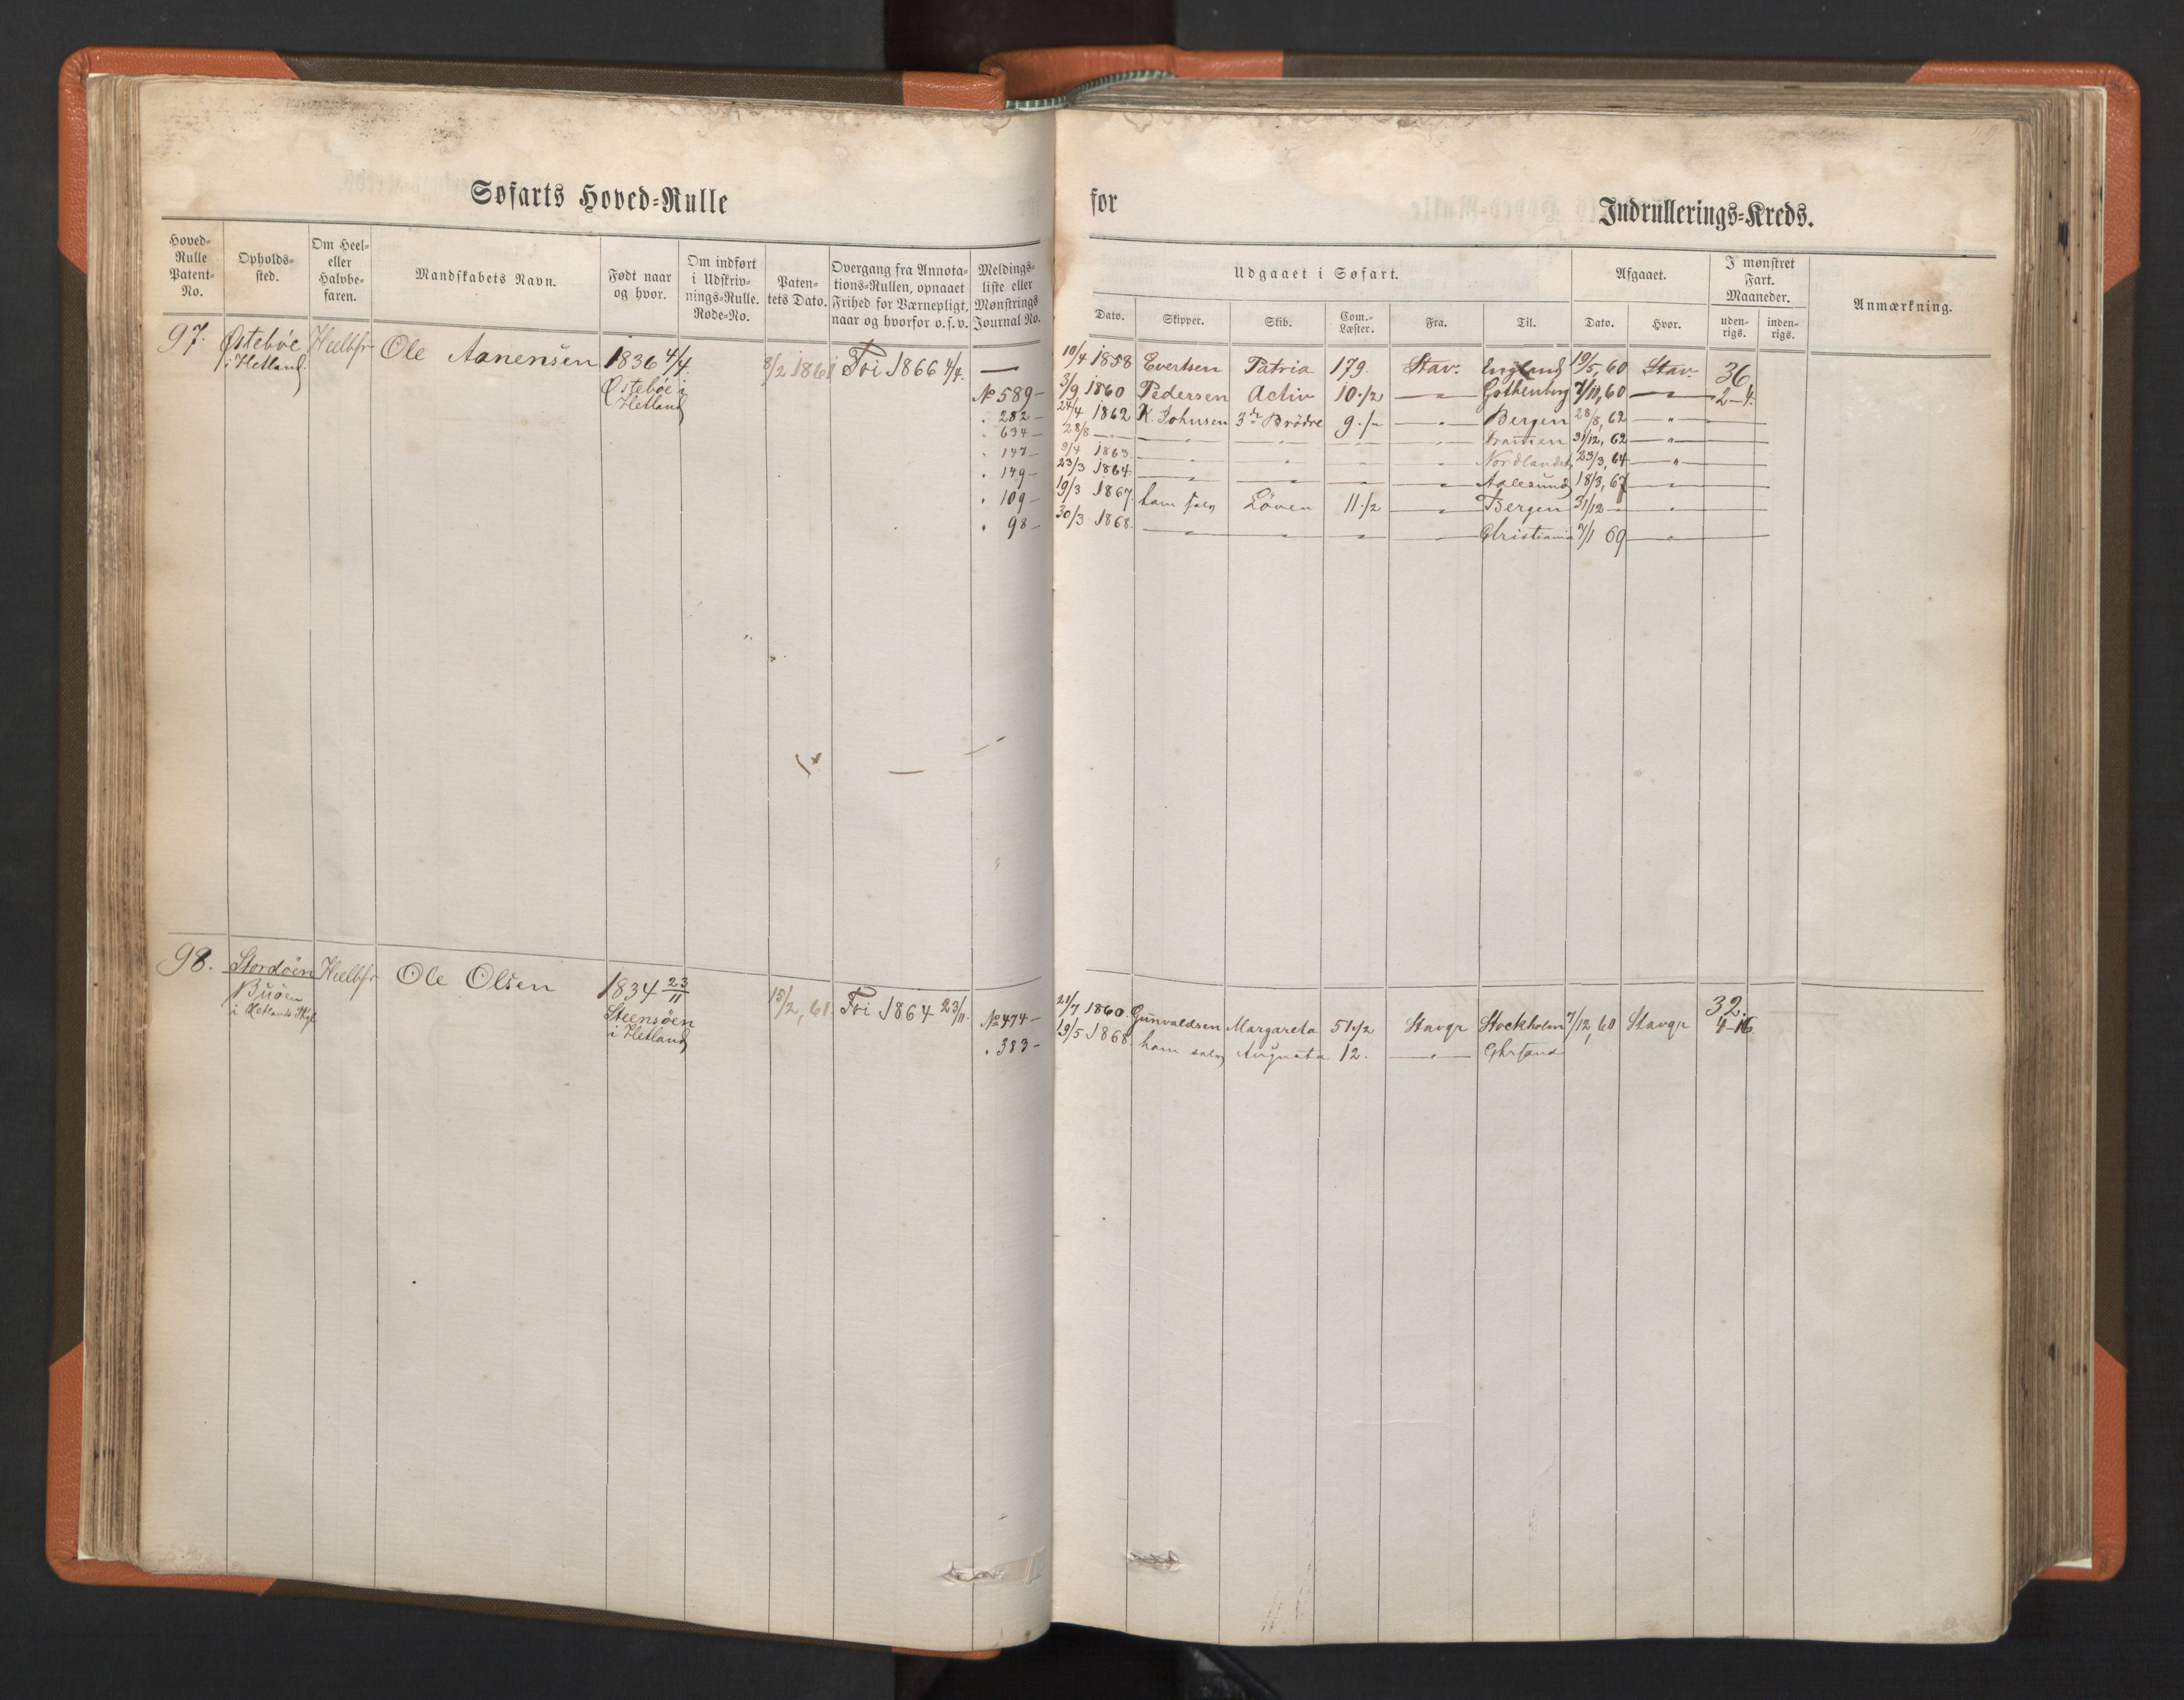 Søfarts Hoved-Rulle
for Indrullerings-Kreds.
Hoved-Rulle Patent-No.
Opholds-sted.
Om Heel- eller Halvbe-faren.
Mandskabets Navn.
Født naar og hvor.
Om indført i Udskriv-nings-Rulle. Rode-No.
Paten-tets Dato.
Overgang fra Annota-tions-Rullen, opnaaet Frihed for Værnepligt, naar og hvorfor o.s.v.
Meldings-liste eller Mønstrings Journal No.
Udgaaet i Søfart.
Dato. Skipper. Skib. Com.-Læster. Fra. Til.
Afgaaet.
Dato. Hvor.
I mønstret Fart. Maaneder.
uden-rigs. inden-rigs.
Anmærkning.
97. Østebøe i Hetland. Heelbfr Ole Aanensen 1836 4/4. Østebøe i Hetland 8/2 1861 Fri 1866 4/4. —
10/4 1858 Evertsen Patria 179. Stav. England 19/5, 60 Stav. 36
No 589 — 3/9 1860 Pedersen Activ 10./2 — " — Gothenborg 7/11, 60 — " — 2–4.
" 282 — 24/4 1862 K. Johnsen 3de Brødre 9./- — " — Bergen 28/8, 62 — " —
" 634 — 28/8 — " — — " — — " — — " — — " — Drammen 31/12, 62 — " —
" 147 — 9/4 1863. — " — " — " — " — Nordlandet 23/3, 64 — " —
" 149 — 23/3 1864 — " — — " — — " — — " — Aalesund 18/3, 67 — " —
" 109 — 19/3 1867. ham selv Löven 11./2 — " — Bergen 31/12 — — " —
" 98 — 30/3 1868. — " — — " — — " — — " — Christiania 7/1 69 — " —
98. Stordöen Buöen i Hetlands Skgl Heelbfr Ole Olsen 1834 23/11 Steensöen i Hetland 15/2, 61. Fri 1864 23/11.
No 474 — 21/7 1860. Gunvaldsen Margareta 51./2 Stavgr Stockholm 7/12, 60 Stavgr 32. 4–16
" 383 — 19/5 1868 ham selv Augusta 12. — " — Chrsand